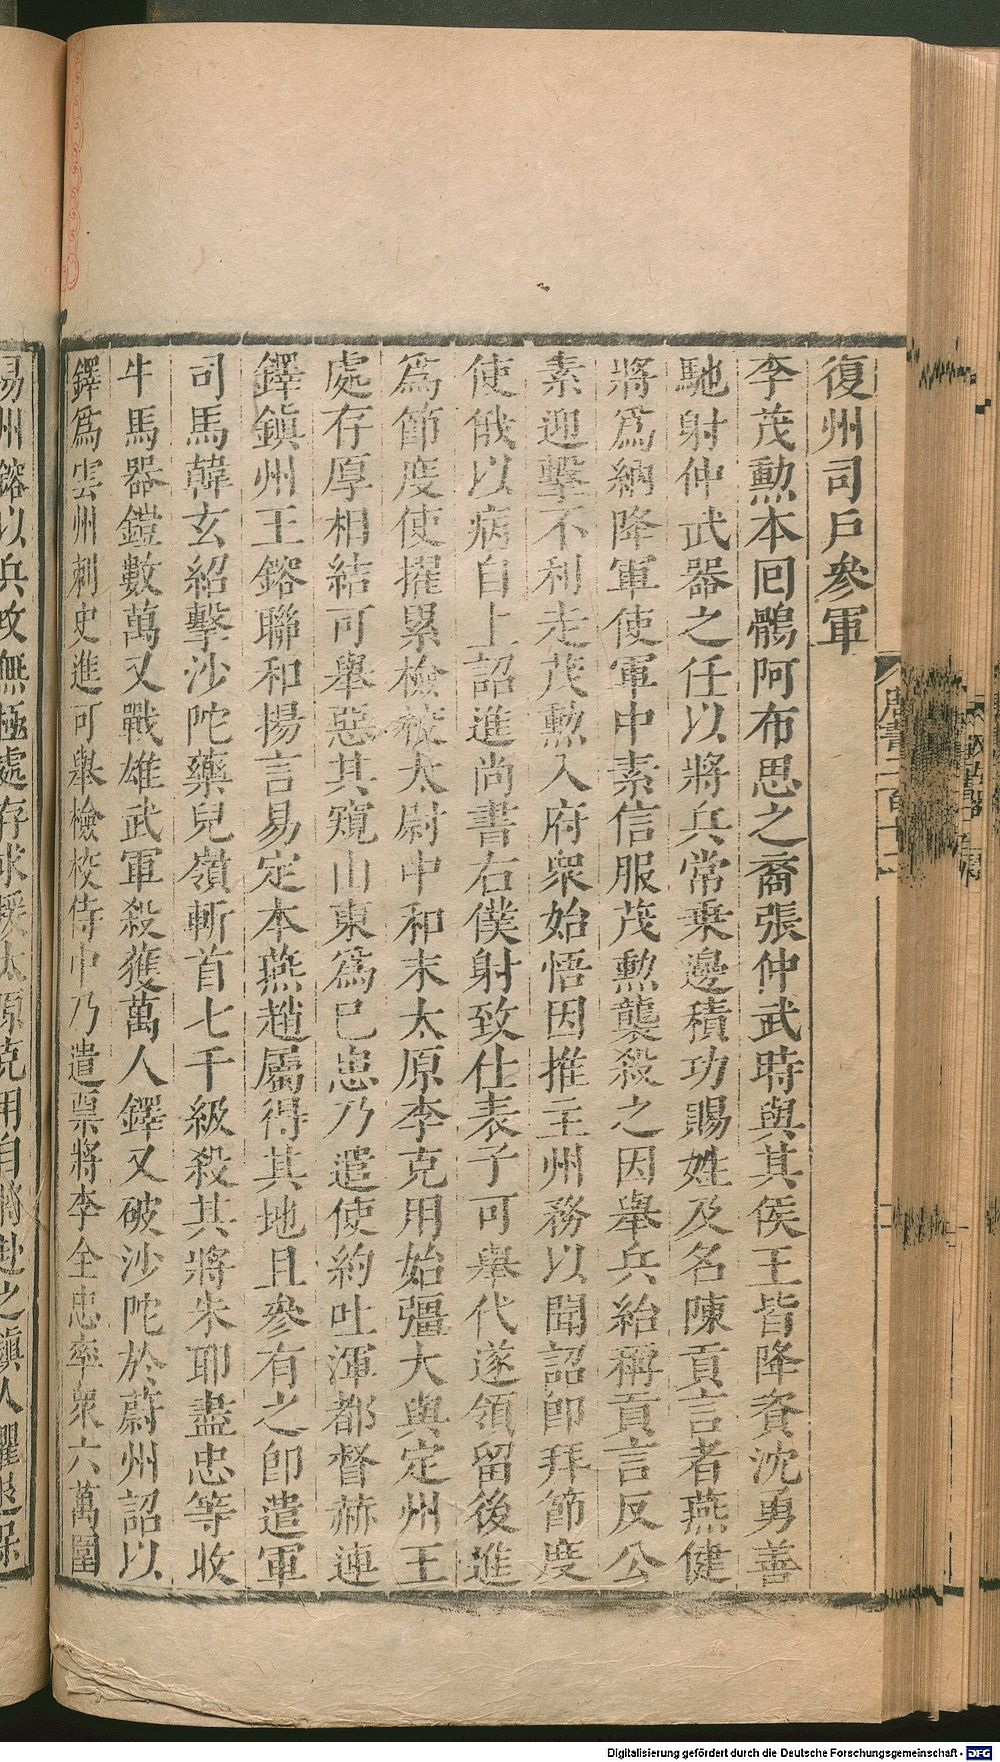 復州司戶參軍
李茂勲本回鶻阿布思之裔張仲武時與其侯王皆降資沈勇善
馳射仲武器之任以將兵常乗邊積功賜姓及名陳貢言者燕健
將爲納降軍使軍中素信服茂勲襲殺之因舉兵紿稱貢言反公
素迎擊不利走茂勲入府衆始悟因推主州務以聞詔即拜節度
使俄以病自上詔進尚書右僕射致仕表子可舉代遂領留後進
爲節度使擢累檢校太尉中和末太原李克用始彊大與定州王
處存厚相結可舉惡其窺山東爲已患乃遣使約吐渾都督赫連
鐸鎮州王鎔聯和揚言易定本燕趙屬得其地且參有之即遣軍
司馬韓玄紹擊沙陀藥兒嶺斬首七千級殺其將朱耶盡忠等收
牛馬器鎧數萬又戰雄武軍殺獲萬人鐸又破沙陀於蔚州詔以
鐸爲雲州刺史進可舉檢校侍中乃遣票將李全忠率衆六萬圍
易州鎔以兵攻無極處存求援太原克用自將赴之鎮人懼退保
Digitalisierung gefördert durch die Deutsche Forschungsgemeinschaft - DFG